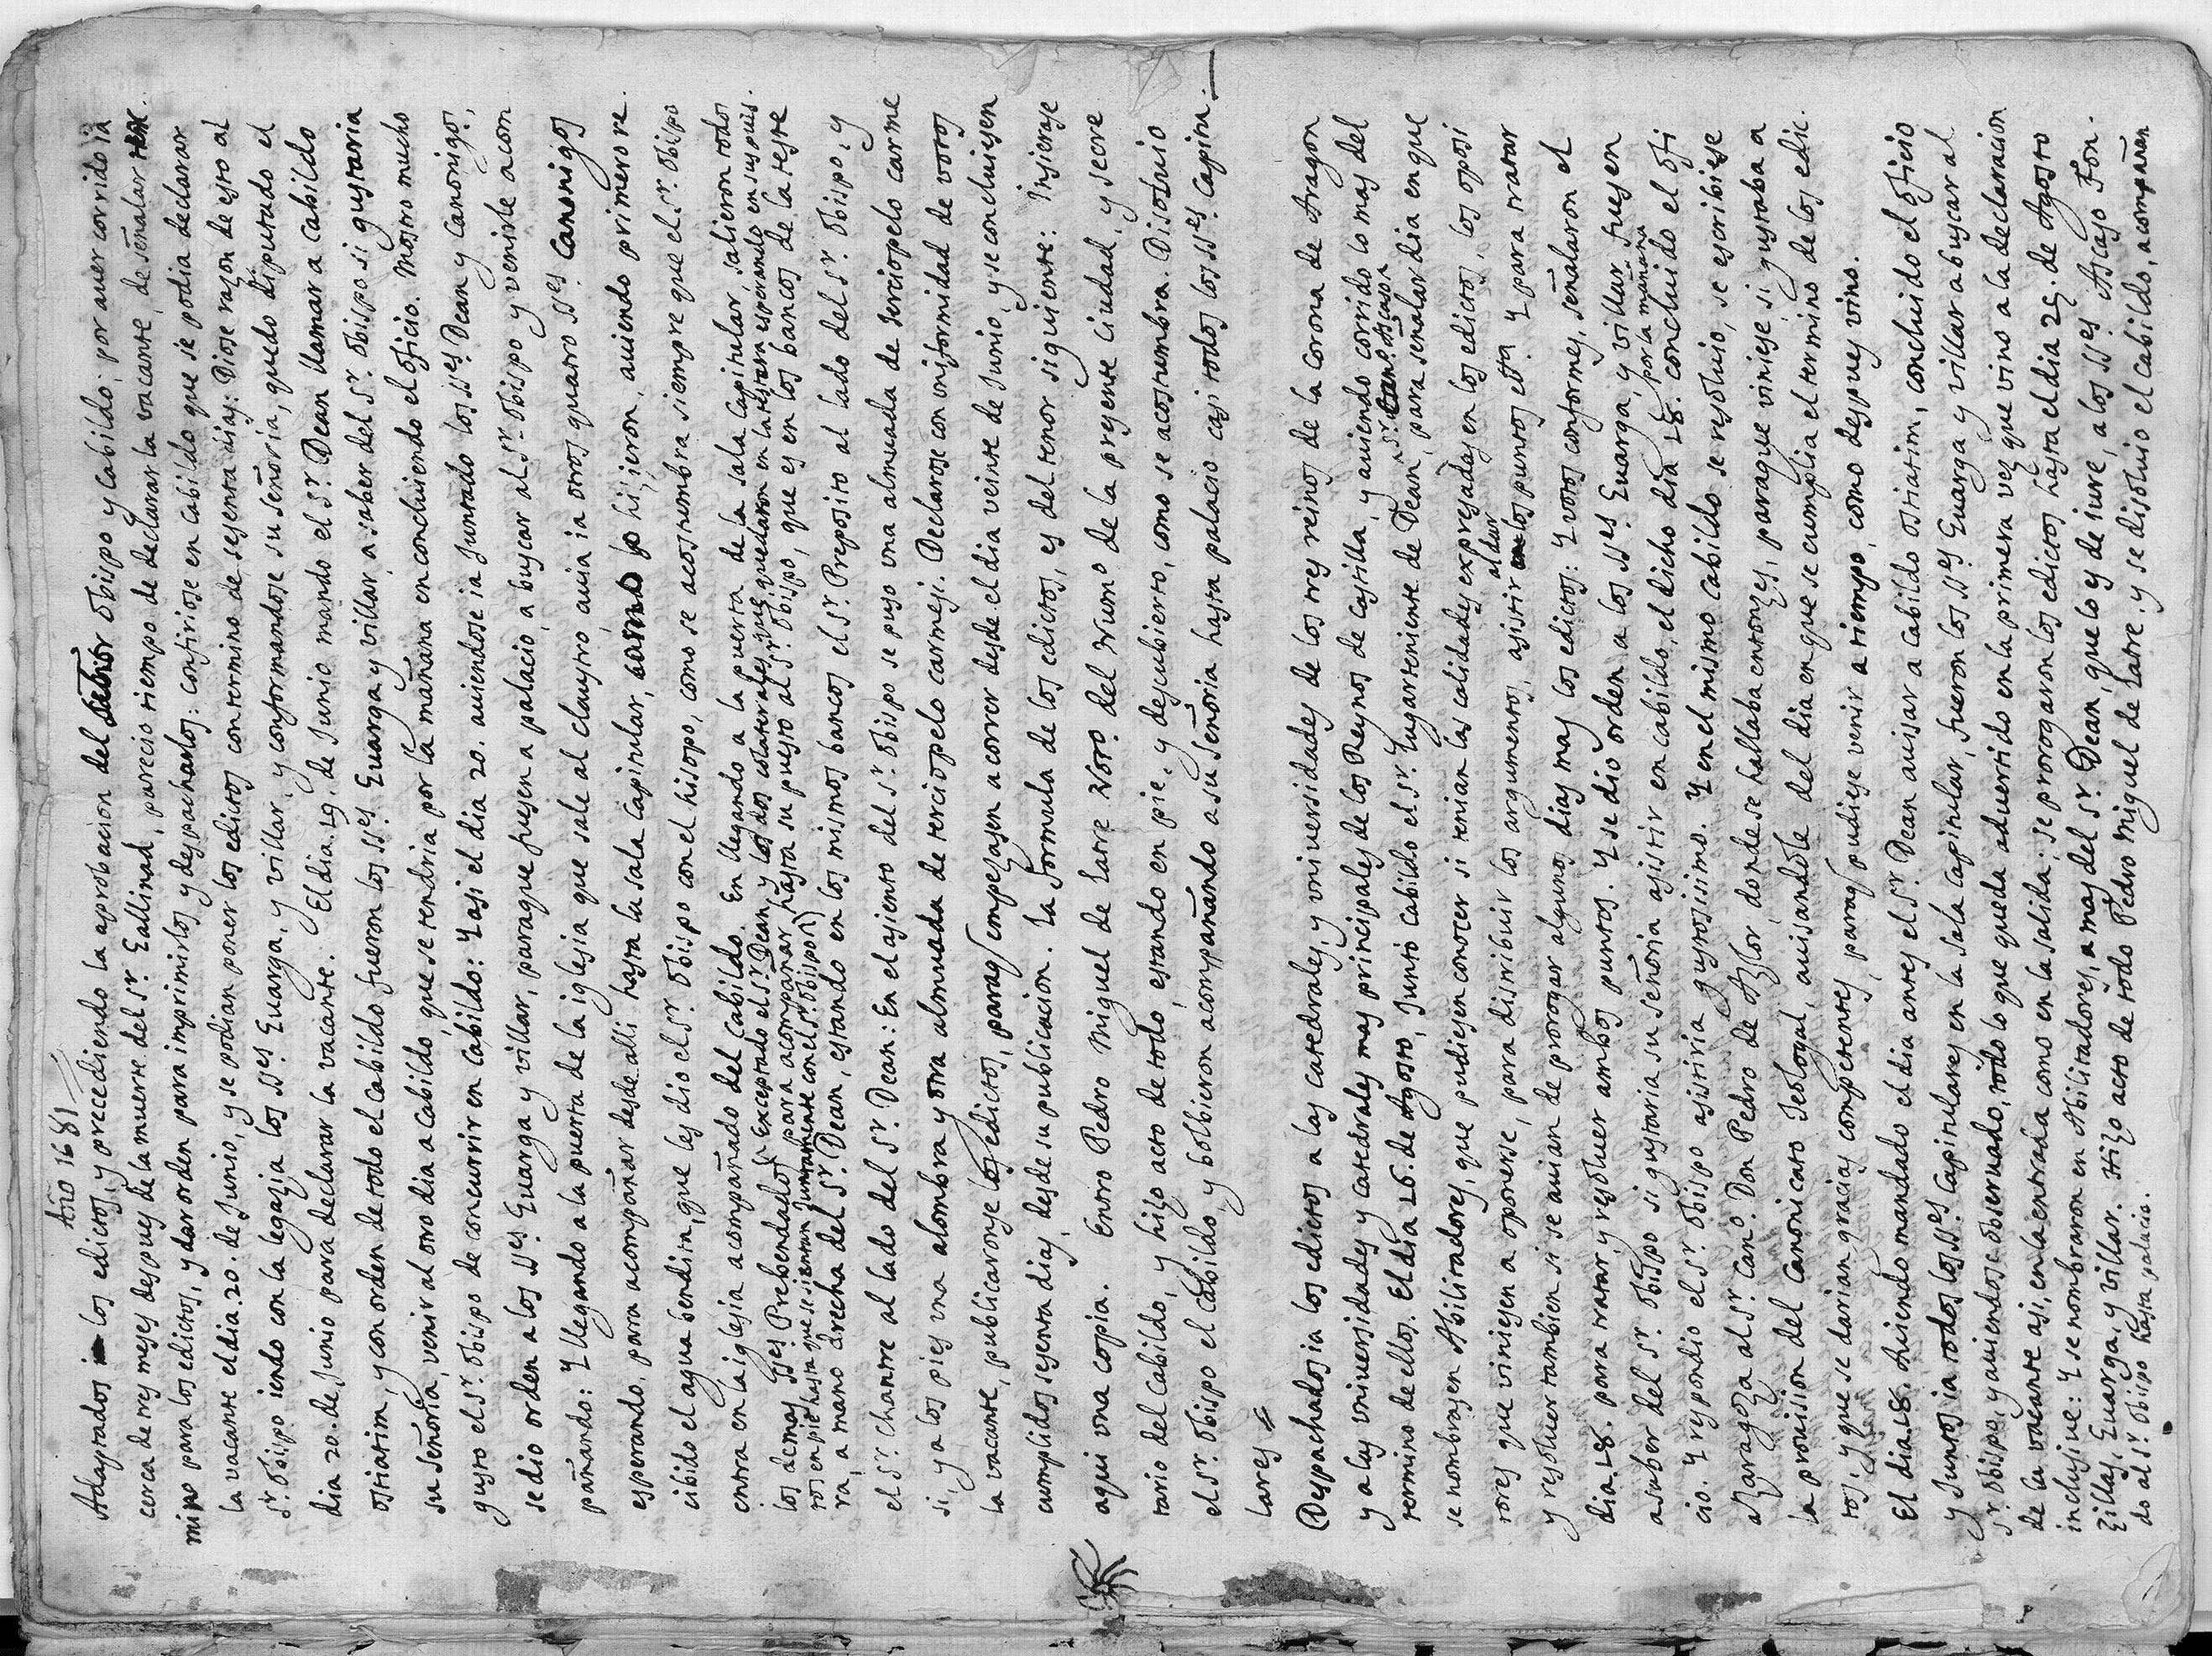 Año 1681
Adaptados los edictos, y precediendo la aprobacion del Señor Obispo y Cabildo, por auer corrido ia
cerca de tres meses despues de la muerte del Sr. Gallinad, parecio tiempo de declarar la vacante, de señalar
mino para los edictos, y dar orden para imprimirlos y despacharlos: confiriose en Cabildo que se podia declarar
la vacante el dia 20. de Junio, y se podian poner los edictos con termino de sesenta dias: Diose razon de esto al
Sr. Obispo iendo con la legazia los SSes. Euarga, y Villar, y conformandose su Señoria, quedo diputado el
dia 20. de Junio para declarar la vacante. El dia 19. de Junio mando el Sr. Dean llamar a Cabildo
ostiatim, y con orden de todo el Cabildo fueron los SSes. Euarga y Villar, a saber del Sr. Obispo si gustaria
su Señoria, venir al otro dia a Cabildo, que se tendria por la mañana en concluiendo el oficio. Mostro mucho
gusto el Sr. Obispo de concurrir en Cabildo: Y asi el dia 20. auiendose ia Juntado los SSes. Dean y Canonigos,
se dio orden a los SSes. Euarga y Villar, paraque fuesen a palacio, a buscar al Sr. Obispo y venirle acom
pañando: Y llegando a la puerta de la iglesia que sale al claustro, auia ia otros quatro SSes. Canonigos
esperando, para acompañar desde alli hasta la sala Capitular, como lo hizieron, auiendo primero re.
cibido el agua bendita, que les dio el Sr. Obispo con el hisopo, como se acostumbra siempre que el Sr. Obispo
entra en la iglesia acompañado del Cabildo. En llegando a la puerta de la sala Capitular, salieron todos
los demas SSes. Prebendados (Exceptado el Sr. Dean, y los dos colaterales que quedaron en la testera esperando en sus pues.
tos en pie hasta que se sientan juntamente con el Sr. Obispo) para acompañar hasta su puesto al Sr. Obispo, que es en los bancos de la teste
ra, a mano drecha del Sr. Dean, estando en los mismos bancos el Sr. Preposito al lado del Sr. Obispo, y
el Sr. Chantre al lado del Sr. Dean: En el asiento del Sr. Obispo se puso una almuada de terciopelo carme
si, y a los pies una alombra y otra almuada de terciopelo carmesi. Declarose con vniformidad de votos
la vacante, publicaronse los edictos, paraq empezasen a correr desde el dia veinte de Junio, y se concluiesen
cumplidos sesenta dias, desde su publicacion. La formula de los edictos, es del tenor siguiente: Insierase
aqui vna copia. Entro Pedro Miguel de Latre Noto. del Numo. de la presente Ciudad, y secre
tario del Cabildo, y hizo acto de todo, estando en pie, y descubierto, como se acostumbra. Disoluio
el Sr. Obispo el Cabildo, y bolbieron acompañando a su Señoria hasta palacio casi todos los SSes. Capitu.
lares
Despachados ia los edictos a las Catedrales, y vniuersidades de los tres reinos de la Corona de Aragon
y a las vniuersidades y Catedrales mas principales de los Reynos de Castilla, y auiendo corrido lo mas del
termino de ellos. El dia 16. de Agosto, Junto Cabildo el Sr. Lugarteniente de Dean, Sr. Can. Ascaso, para señalar dia en que
se nombrasen Abilitadores, que pudiesen conocer si tenian las calidades expresadas en los edictos, los oposi
tores que viniesen a oponerse, para distribuir los argumentos, asistir al dar los puntos etta. Y para tratar
y resoluer tambien si se auian de prorogar algunos dias mas los edictos: Y votos conformes, señalaron el
dia 18. para tratar y resoluer ambos puntos. Y se dio orden a los SSes. Euarga, y Villar, fuesen
a saber del Sr. Obispo si gustaria su Señoria asistir en Cabildo, el dicho dia 18. por la mañana concluido el ofi
cio. Y respondio el Sr. Obispo asistiria gustosisimo. Y en el mismo Cabildo se resoluio, se escribiese
a Zaragoza al Sr. Cano. Don Pedro de Azlor, donde se hallaba entonzes, paraque viniese, si gustaba a
la prouision del Canonicato Teologal, auisandole del dia en que se cumplia el termino de los edic.
tos, y que se darian gracias competentes, paraq pudiese venir a tiempo, como despues vino.
El dia 18. Auiendo mandado el dia antes el Sr. Dean auisar a Cabildo ostiatim, concluido el oficio
y Juntos ia todos los SSes. Capitulares en la sala Capitular, fueron los SSes. Euarga y Villar a buscar al
Sr. Obispo, y auiendose obseruado, todo lo que queda aduertido en la primera vez que vino a la declaracion
de la vacante asi, en la entrada como en la salida; se prorogaron los edictos hasta el dia 25. de Agosto
inclusiue: Y se nombraron en Abilitadores, a mas del Sr. Dean, que lo es de iure, a los SSes. Ascaso, Fon.
zillas, Euarga, y Villar. Hizo acto de todo Pedro Miguel de Latre. y se disoluio el Cabildo, acompañan
do al Sr. Obispo hasta palacio.